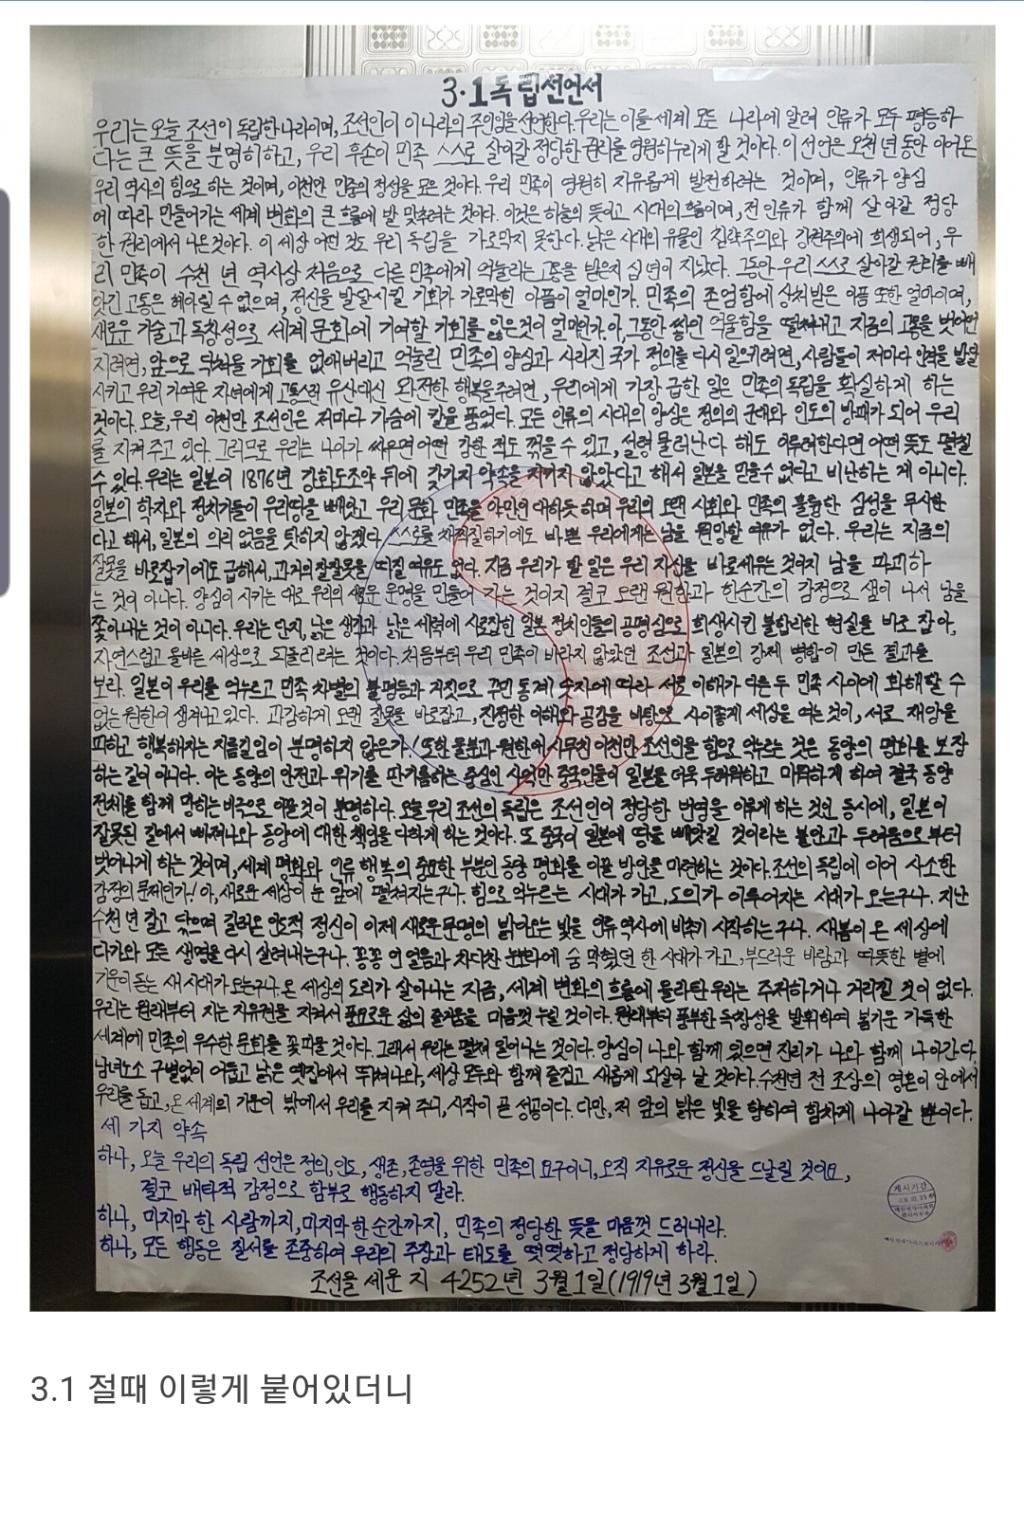 3·1독립선언서
우리는 오늘 조선이 독립한 나라이며, 조선인이 이 나라의 주인임을 선언한다. 우리는 이를 세계 모든 나라에 알려 인류가 모두 평등하
다는 큰 뜻을 분명히하고, 우리 후손이 민족 스스로 살아갈 정당한 권리를 영원히 누리게 할 것이다. 이 선언은 오천 년 동안 이어온
우리 역사의 힘으로 하는 것이며, 이천만 민중의 정성을 모은 것이다. 우리 민족이 영원히 자유롭게 발전하려는 것이며, 인류가 양심
에 따라 만들어가는 세계 변화의 큰 흐름에 발 맞추려는 것이다. 이것은 하늘의 뜻이고 시대의 흐름이며, 전 인류가 함께 살아갈 정당
한 권리에서 나온것이다. 이 세상 어떤 것도 우리 독립을 가로막지 못한다. 낡은 시대의 유물인 침략주의와 강권주의에 희생되어, 우
리 민족이 수천 년 역사상 처음으로 다른 민족에게 억눌리는 고통을 받은지 십 년이 지났다. 그동안 우리 스스로 살아갈 권리를 빼
앗긴 고통은 헤아릴 수 없으며, 정신을 발달시킬 기회가 가로막힌 아픔이 얼마인가. 민족의 존엄함에 상처받은 아픔 또한 얼마이며,
새로운 기술과 독창성으로 세계 문화에 기여할 기회를 잃은것이 얼마인가. 아, 그동안 쌓인 억울함을 떨쳐내고 지금의 고통을 벗어던
지려면, 앞으로 닥쳐올 기회를 없애버리고 억눌린 민족의 양심과 사라진 국가 정의를 다시 일으키려면, 사람들이 저마다 인격을 발달
시키고 우리 가여운 자녀에게 고통스런 유산대신 완전한 행복을 주려면, 우리에게 가장 급한 일은 민족의 독립을 확실하게 하는
것이다. 오늘, 우리 이천만 조선인은 저마다 가슴에 칼을 품었다. 모든 인류와 시대의 양심은 정의의 군대와 인도의 방패가 되어 우리
를 지켜 주고 있다. 그러므로 우리는 나아가 싸우면 어떤 강한 적도 꺾을 수 있고, 설령 물러난다 해도 이루려한다면 어떤 뜻도 펼칠
수 있다. 우리는 일본이 1876년 강화도조약 뒤에 갖가지 약속을 지키지 않았다고 해서 일본을 믿을수 없다고 비난하는 게 아니다.
일본의 학자와 정치가들이 우리땅을 빼앗고 우리 문화 민족을 야만인 대하듯 하며 우리의 오랜 사회와 민족의 훌륭한 심성을 무시한
다고 해서, 일본의 의리 없음을 탓하지 않겠다. 스스로를 채찍질하기에도 바쁜 우리에게는 남을 원망할 여유가 없다. 우리는 지금의
잘못을 바로잡기에도 급해서, 과거의 잘잘못을 따질 여유도 없다. 지금 우리가 할 일은 우리 자신을 바로세우는 것이지 남을 파괴하
는 것이 아니다. 양심이 시키는 대로 우리의 새로운 운명을 만들어 가는 것이지 결코 오랜 원한과 한순간의 감정으로 샘이 나서 남을
쫓아내는 것이 아니다. 우리는 단지, 낡은 생각과 낡은 세력에 사로잡힌 일본 정치인들의 공명심으로 희생시킨 불합리한 현실을 바로 잡아,
자연스럽고 올바른 세상으로 되돌리려는 것이다. 처음부터 우리 민족이 바라지 않았던 조선과 일본의 강제 병합이 만든 결과를
보라. 일본이 우리를 억누르고 민족 차별의 불평등과 거짓으로 꾸민 통계 숫자에 따라 서로 이해가 다른 두 민족 사이에 화해할 수
없는 원한이 생겨나고 있다. 과감하게 오랜 잘못을 바로잡고, 진정한 이해와 공감을 바탕으로 사이좋게 세상을 여는 것이, 서로 재앙을
피하고 행복해지는 지름길임이 분명하지 않은가! 또한 울분과 원한에 사무친 이천만 조선인을 힘으로 억누르는 것은 동양의 평화를 보장
하는 길이 아니다. 이는 동양의 안전과 위기를 판가름하는 중심인 사억만 중국인들이 일본을 더욱 두려워하고 미워하게 하여 결국 동양
전체를 함께 망하는 비극으로 이끌 것이 분명하다. 오늘 우리 조선의 독립은 조선인이 정당한 번영을 이루게 하는 것인 동시에, 일본이
잘못된 길에서 빠져나와 동양에 대한 책임을 다하게 하는 것이다. 또 중국이 일본에 땅을 빼앗길 것이라는 불안과 두려움으로부터
벗어나게 하는 것이며, 세계 평화와 인류 행복의 중요한 부분인 동양 평화를 이룰 방안을 마련하는 것이다. 조선의 독립에 이어 사소한
감정의 문제인가! 아, 새로운 세상이 눈 앞에 펼쳐지는구나. 힘으로 억누르는 시대가 가고, 도의가 이루어지는 시대가 오는구나. 지난
수천 년 갈고 닦으며 길러온 인도적 정신이 이제 새로운 문명의 밝아오는 빛을 인류 역사에 비추기 시작하는구나. 새봄이 온 세상에
다가와 모든 생명을 다시 살려내는구나. 꽁꽁 언 얼음과 차디찬 눈보라에 숨 막혔던 한 시대가 가고, 부드러운 바람과 따뜻한 볕에
기운이 돋는 새 시대가 오는구나. 온 세상의 도리가 살아나는 지금, 세계 변화의 흐름에 올라탄 우리는 주저하거나 거리낄 것이 없다.
우리는 원래부터 지닌 자유권을 지켜서 풍요로운 삶의 즐거움을 마음껏 누릴 것이다. 원래부터 풍부한 독창성을 발휘하여 봄기운 가득한
세계에 민족의 우수한 문화를 꽃피울 것이다. 그래서 우리는 떨쳐 일어나는 것이다. 양심이 나와 함께 있으면 진리가 나와 함께 나아간다.
남녀노소 구별없이 어둡고 낡은 옛집에서 뛰쳐나와, 세상 모두와 함께 즐겁고 새롭게 되살아 날 것이다. 수천년 전 조상의 영혼이 안에서
우리를 돕고, 온 세계의 기운이 밖에서 우리를 지켜 주니, 시작이 곧 성공이다. 다만, 저 앞의 밝은 빛을 향하여 힘차게 나아갈 뿐이다.
세 가지 약속
하나, 오늘 우리의 독립 선언은 정의, 인도, 생존, 존영을 위한 민족의 요구이니, 오직 자유로운 정신을 드날릴 것이요,
결코 배타적 감정으로 함부로 행동하지 말라.
하나, 마지막 한 사람까지, 마지막 한 순간까지, 민족의 정당한 뜻을 마음껏 드러내라.
하나, 모든 행동은 질서를 존중하여 우리의 주장과 태도를 떳떳하고 정당하게 하라.
게시기간
조선을 세운 지 4252년 3월 1일(1919년 3월 1일)
3.1 절때 이렇게 붙어있더니